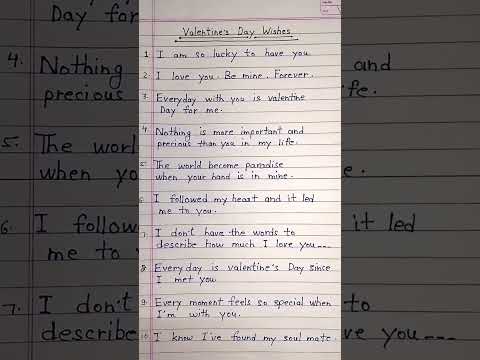 Valentine's Day Wishes
1. I am so lucky to have you.
2. I love you. Be mine. Forever.
3. Everyday with you is valentine
Day for me.
4. Nothing is more important and
precious than you in my life.
5. The world become paradise
when your hand is in mine.
6. I followed my heart and it led
me to you.
7. I don't have the words to
describe how much I love you---
8. Every day is valentine's Day since
I met you.
9. Every moment feels so special when
I'm with you.
10. I know I've found my soul mate.
Day for
4. Nothing
precious
5. The world
when yo
6. I follow
me to
7. I don't
describe
and
fe.
it led
to
you---